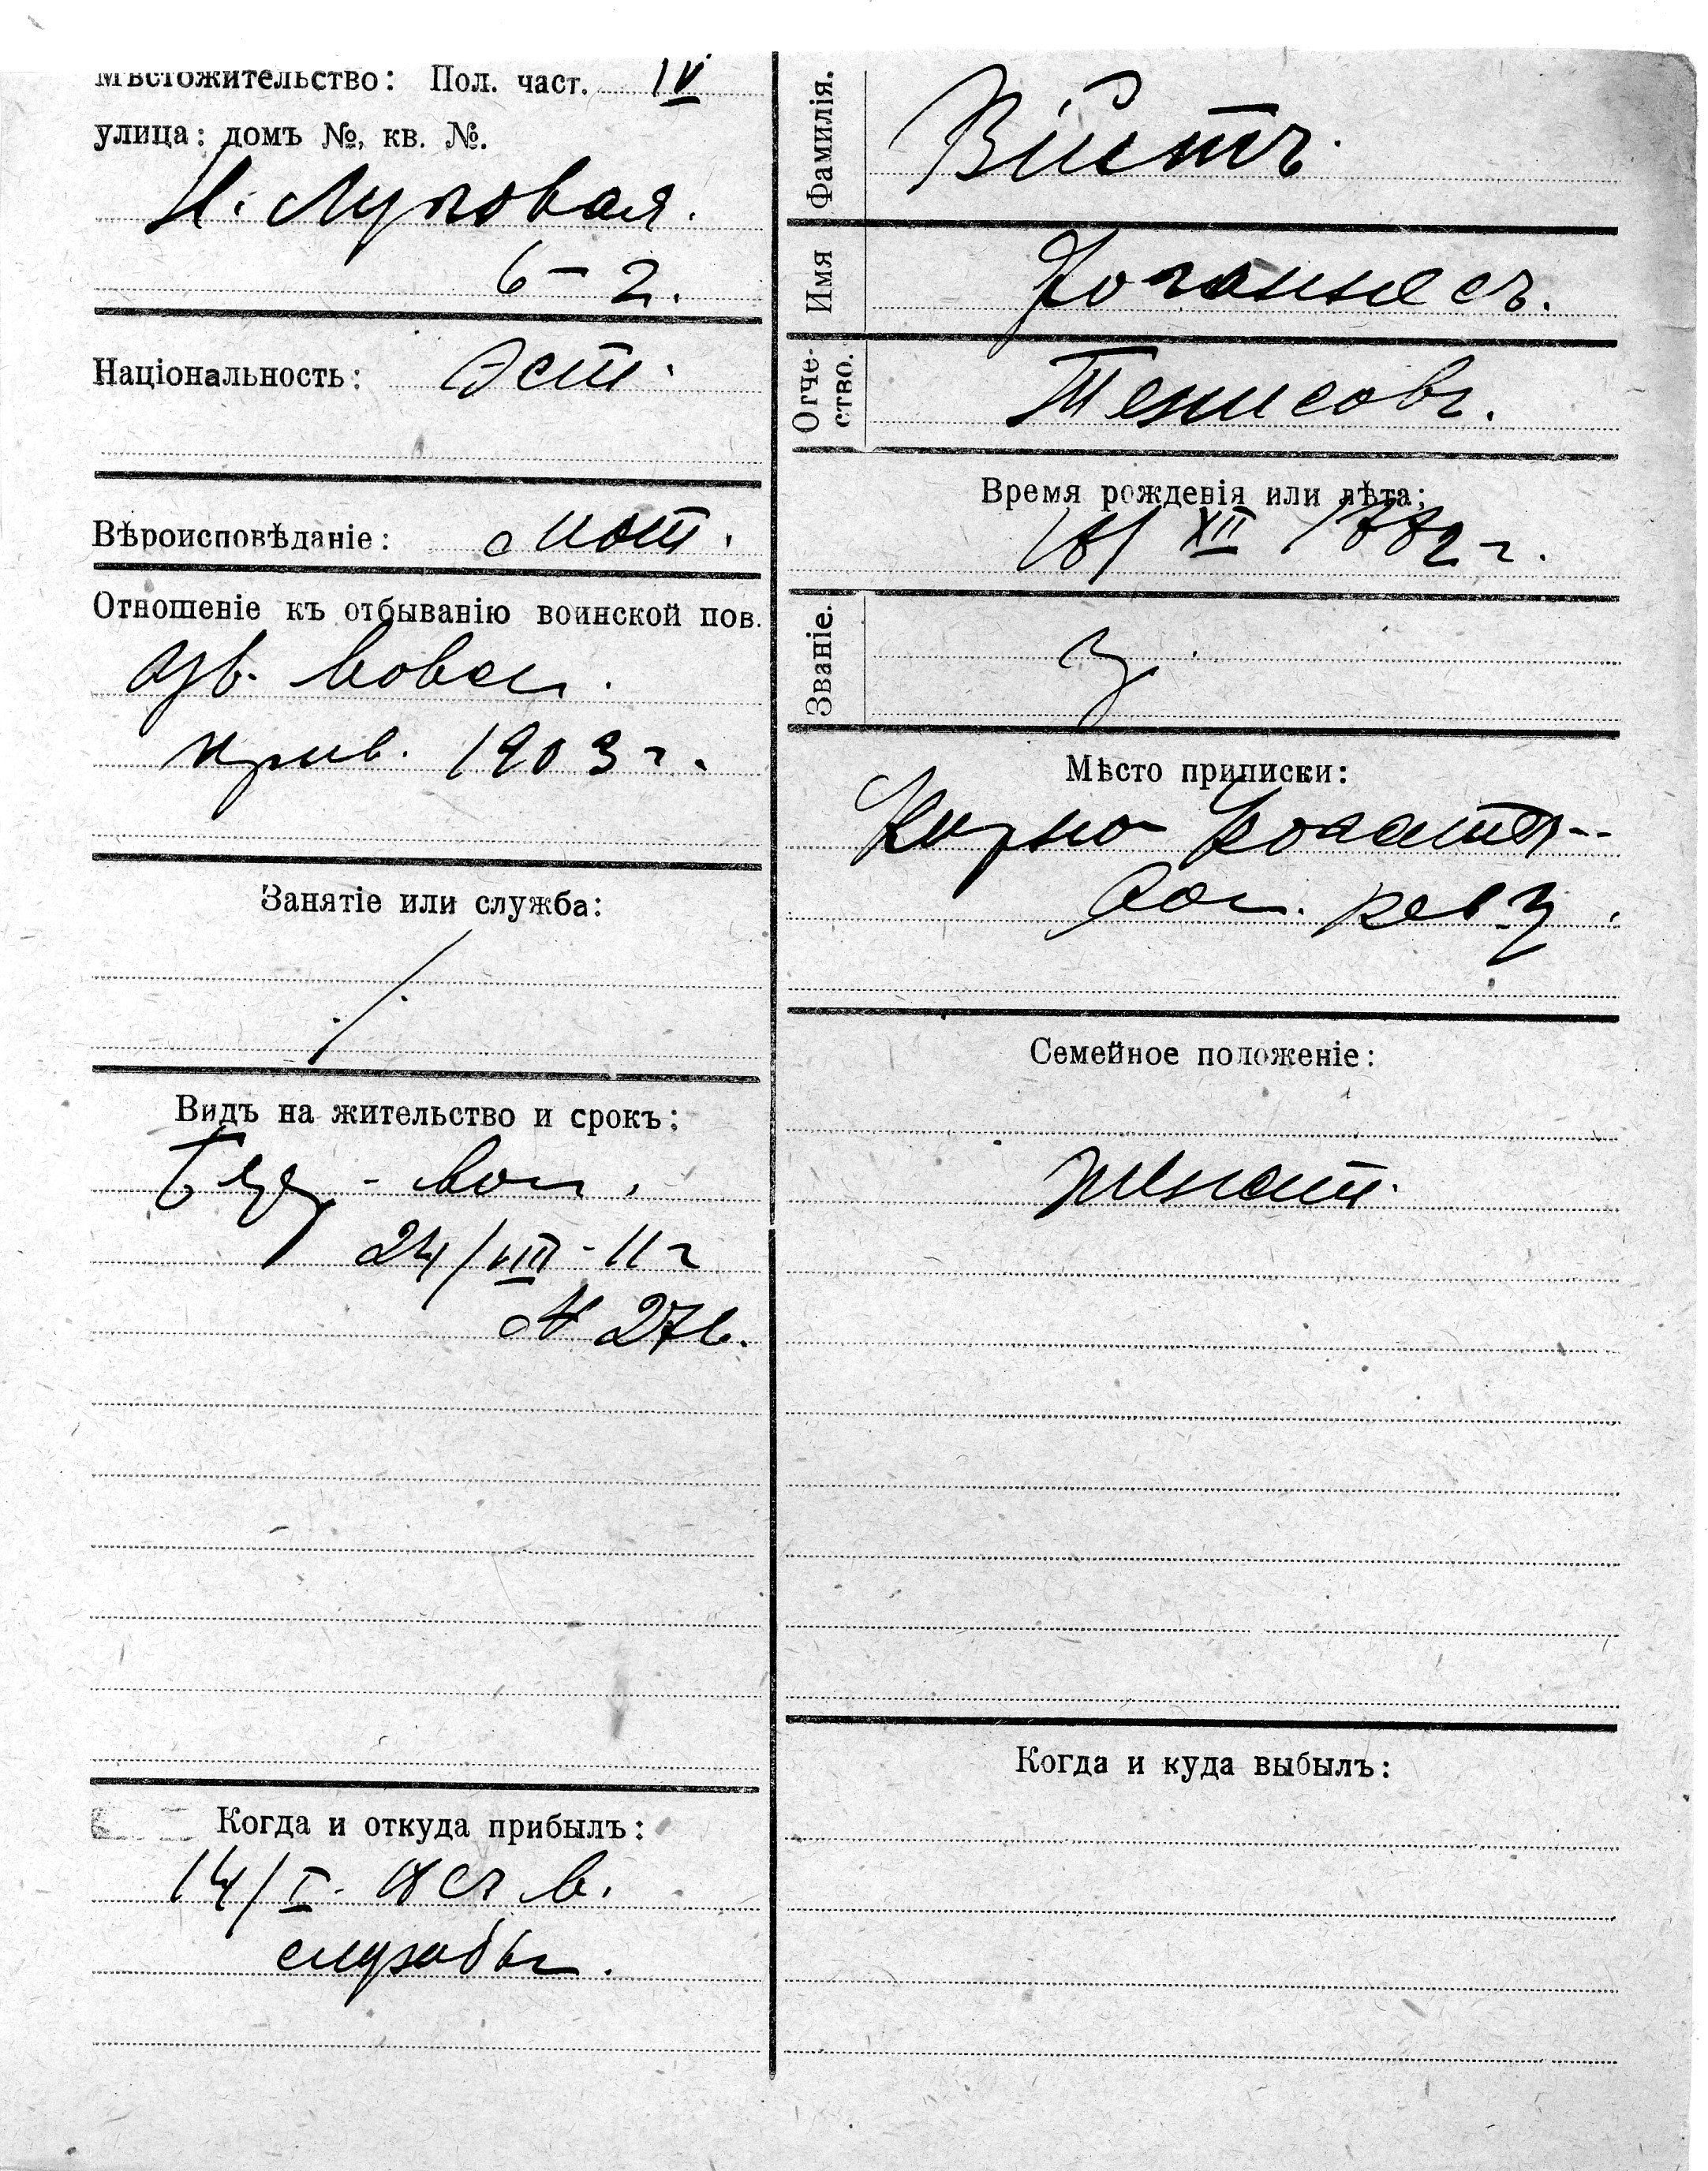 Мѣстожительство: Пол. част. IV
улица: домъ №, кв. №.
Н. Луговая.
6 – 2.
Національность: Эст.
Вѣроисповѣданіе: лют.
Отношеніе къ отбыванію воинской пов.
прив. 1903 г.
Занятіе или служба:
Видъ на жительство и срокъ:
24/VIII - 11 г
№ 276.
Когда и откуда прибылъ:
14/I
службы.
Фамилія.
Війтъ.
Имя
Іоганнесъ.
Отче-
ство.
Тенисовъ.
Время рожденія или лѣта:
XII 1882 г.
Званіе.
Мѣсто приписки:
Курно
Семейное положеніе:
женат.
Когда и куда выбылъ: